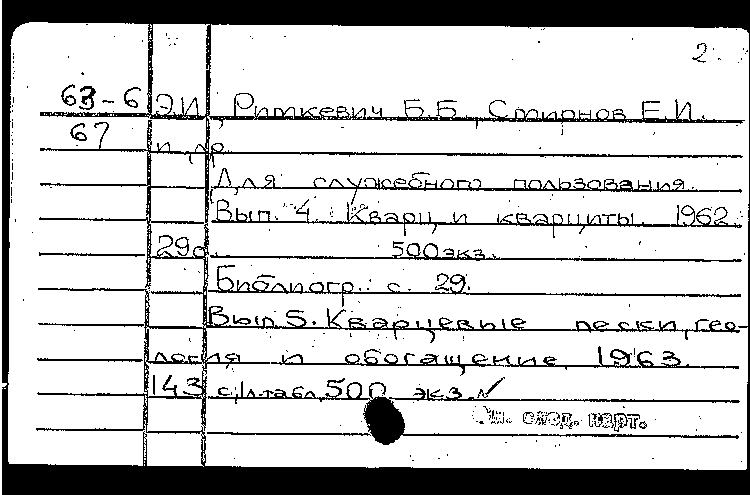 2.
63-6 Э.И., Риткевич Б.Б., Смирнов Е.И.
67 и др.
Для служебного пользования.
Вып. 4. Кварц и кварциты. 1962.
29с. 500экз.
Библиогр.: с. 29.
Вып. 5. Кварцевые пески, гео-
логия и обогащение. 1963.
143 с; 1л.табл. 500 экз. ✓
См. след. карт.